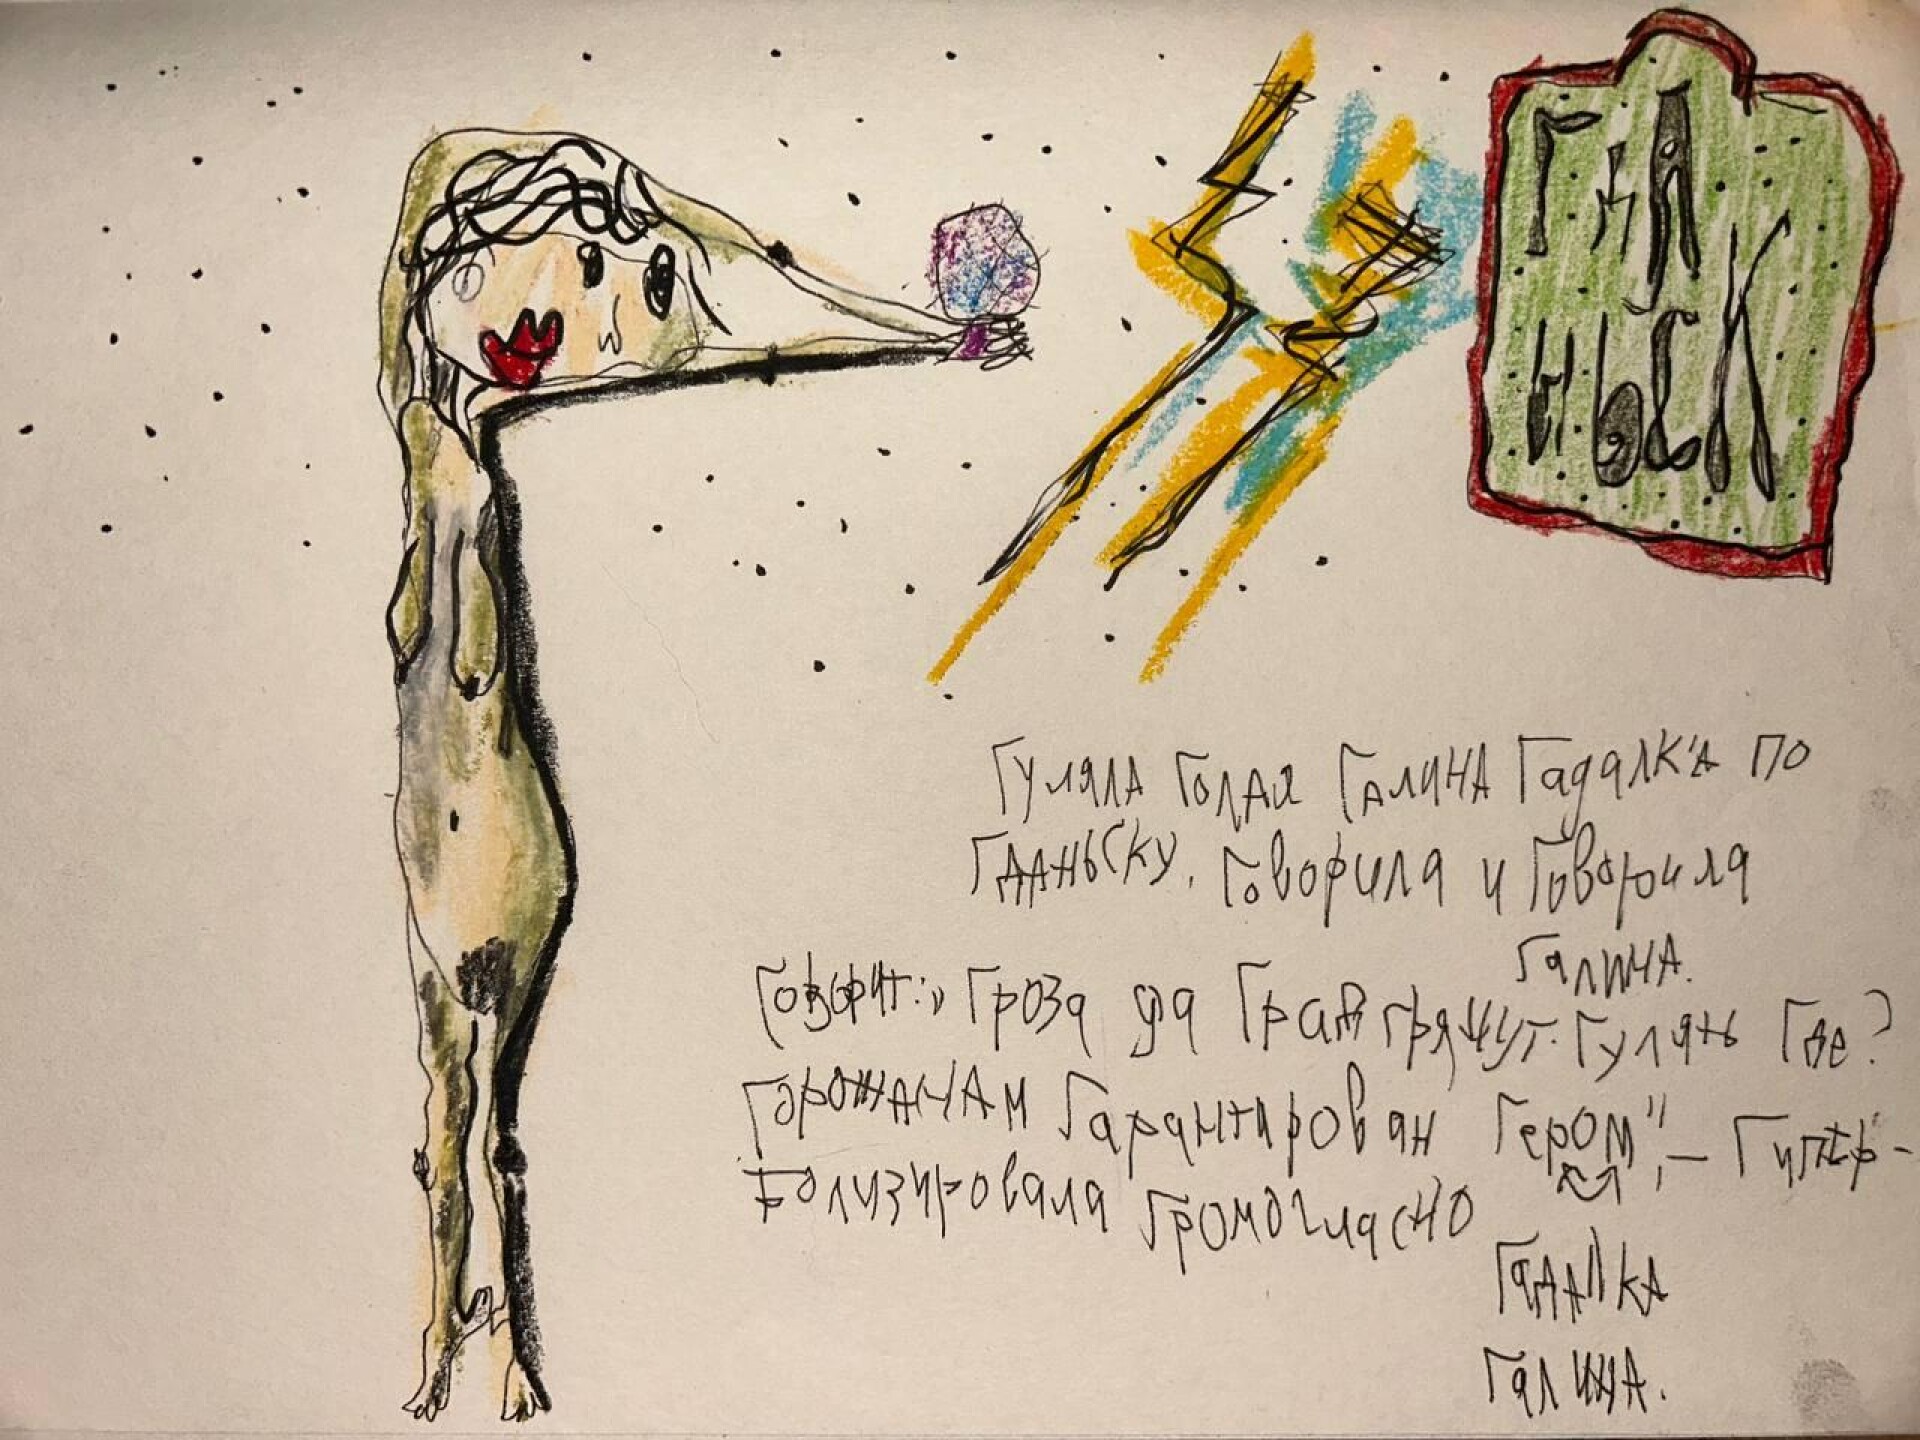 ГДА
НЬСК
Гуляла Голая Галина Гадалка по
Гданьску. Говорила и Говорила
Галина.
Говорит: „Гроза да Град грядут. Гулять Где?
Горожанам Гарантирован Гером", – Гипер-
болизировала Громогласно
Гадалка
Галина.